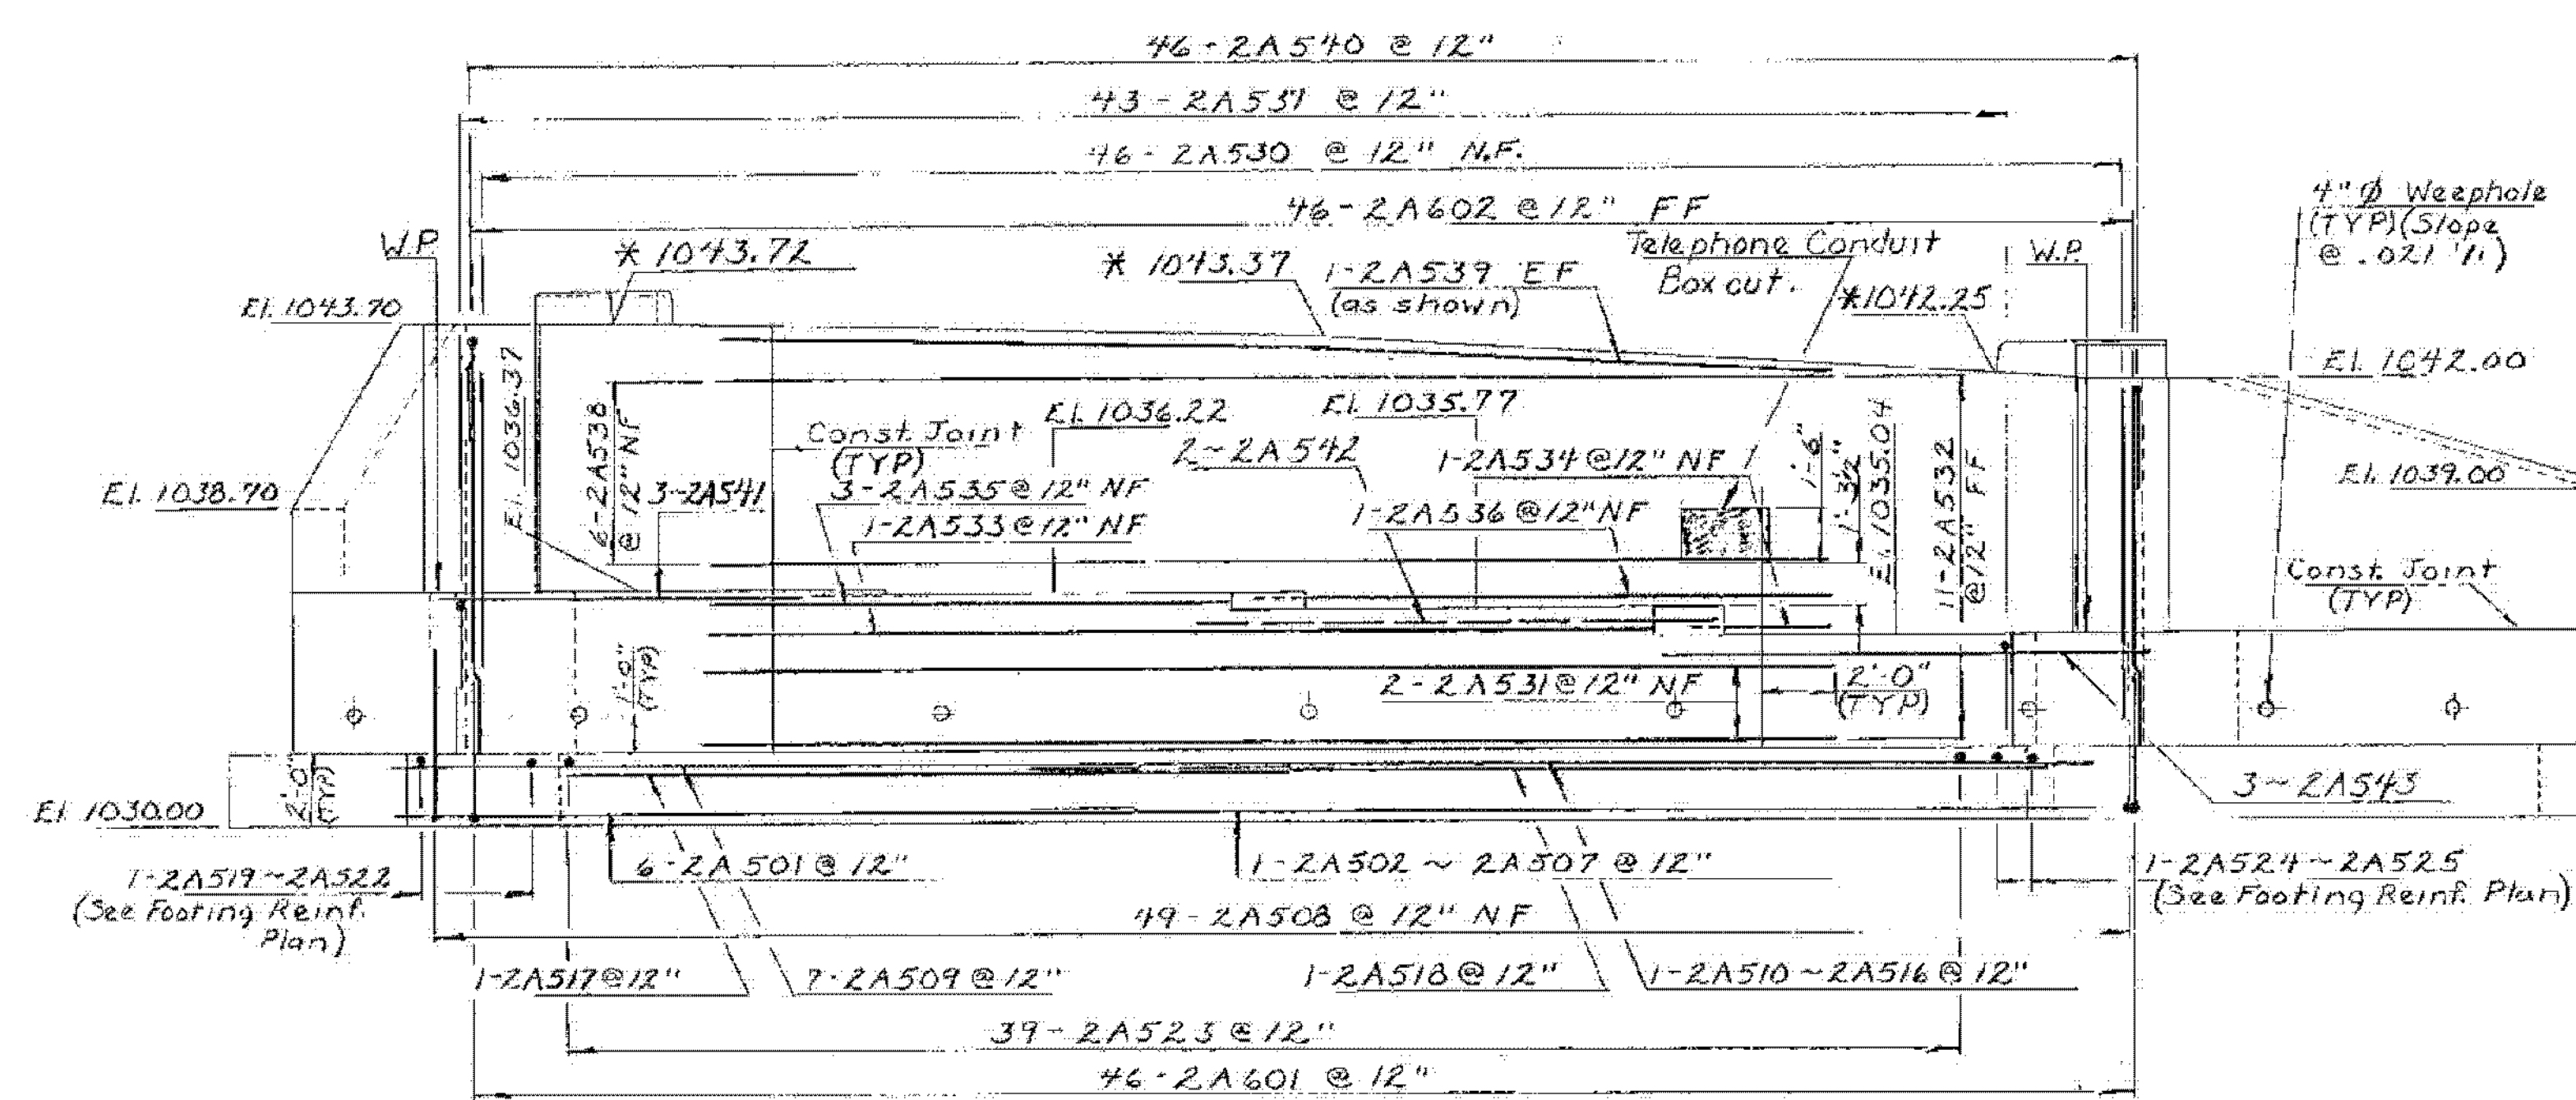 46-2A540 @ 12"
43-2A537 @ 12"
46-2A530 @ 12" N.F.
46-2A602 @ 12" FF
4" Ø Weephole
(TYP)(Slope
@ .021 '/1)
W.P.
* 1043.72
* 1043.37
1-2A539 EF
(as shown)
Telephone Conduit
Box out.
W.P.
*1042.25
El. 1043.70
El. 1042.00
El. 1036.37
6-2A538
@ 12" NF
Const. Joint
(TYP)
El. 1036.22
El. 1035.77
2~2A542
1-2A534 @12" NF
1'-6"
1'-3½"
El. 1035.04
11-2A532
@12" FF
El. 1039.00
El. 1038.70
3-2A541
3-2A535 @ 12" NF
1-2A533 @ 12" NF
1-2A536 @12" NF
Const. Joint
(TYP)
1'-0"
(TYP)
2-2A531 @ 12" NF
2'-0"
(TYP)
2'-0"
(TYP)
El. 1030.00
3~2A543
1-2A519~2A522
(See Footing Reinf.
Plan)
6-2A501 @ 12"
1-2A502 ~ 2A507 @ 12"
1-2A524~2A525
(See Footing Reinf. Plan)
49-2A508 @ 12" NF
1-2A517 @ 12"
7-2A509 @ 12"
1-2A518 @ 12"
1-2A510 ~ 2A516 @ 12"
39-2A523 @ 12"
46-2A601 @ 12"